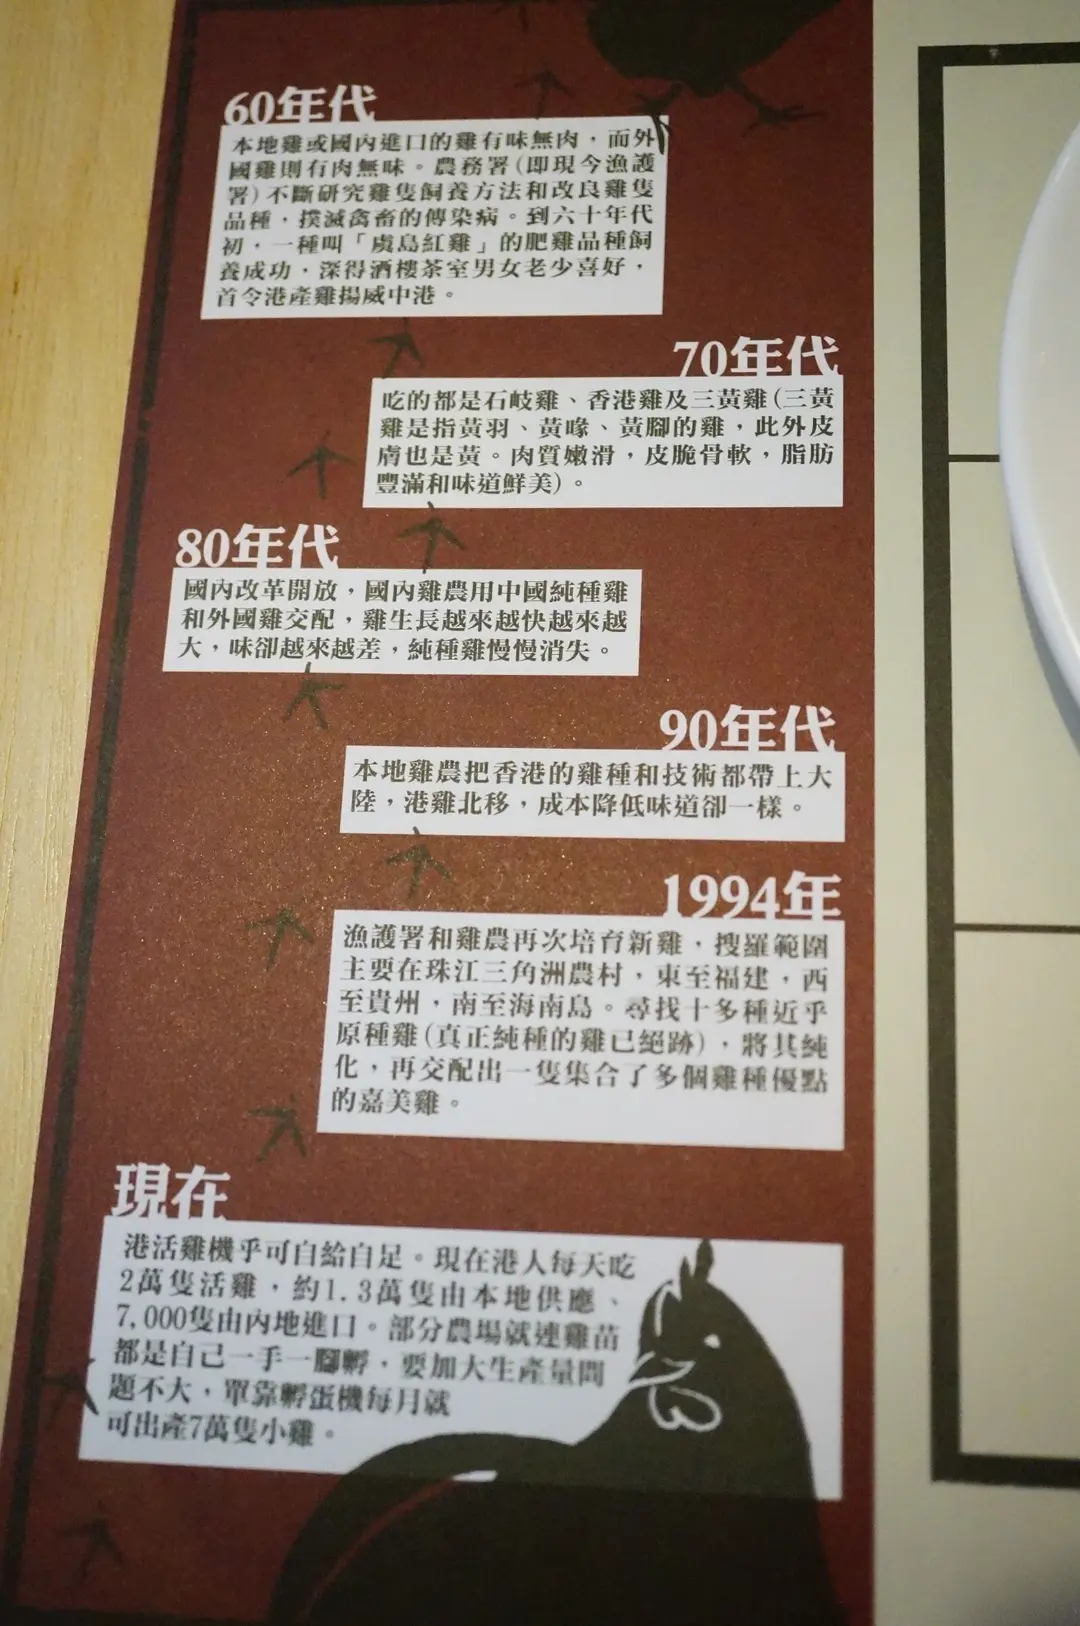 60年代
本地雞或國內進口的雞有味無肉，而外
國雞則有肉無味。農務署(即現今漁護
署)不斷研究雞隻飼養方法和改良雞隻
品種，撲滅禽畜的傳染病。到六十年代
初，一種叫「虞島紅雞」的肥雞品種飼
養成功，深得酒樓茶室男女老少喜好，
首令港產雞揚威中港。
70年代
吃的都是石岐雞、香港雞及三黃雞(三黃
雞是指黃羽、黃喙、黃腳的雞，此外皮
膚也是黃。肉質嫩滑，皮脆骨軟，脂肪
豐滿和味道鮮美)。
80年代
國內改革開放，國內雞農用中國純種雞
和外國雞交配，雞生長越來越快越來越
大，味卻越來越差，純種雞慢慢消失。
90年代
本地雞農把香港的雞種和技術都帶上大
陸，港雞北移，成本降低味道卻一樣。
1994年
漁護署和雞農再次培育新雞，搜羅範圍
主要在珠江三角洲農村，東至福建，西
至貴州，南至海南島。尋找十多種近乎
原種雞(真正純種的雞已絕跡)，將其純
化，再交配出一隻集合了多個雞種優點
的嘉美雞。
現在
港活雞機乎可自給自足。現在港人每天吃
2萬隻活雞，約1.3萬隻由本地供應、
7,000隻由內地進口。部分農場就連雞苗
都是自己一手一腳孵，要加大生產量問
題不大，單靠孵蛋機每月就
可出產7萬隻小雞。